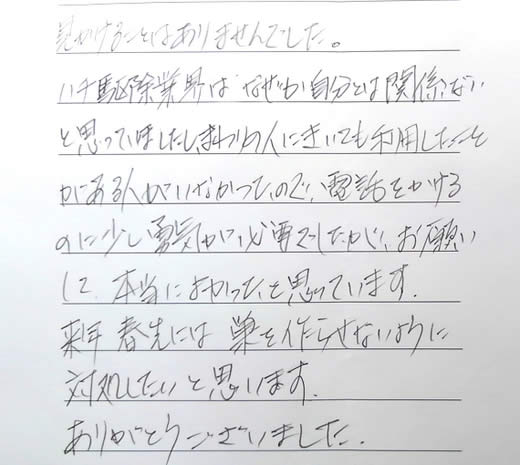 見かけることはありませんでした。
ハチ駆除業界は なぜか自分とは関係ない
と思っていましたし、まわりの人にきいても利用したこと
がある人がいなかったので、電話をかける
のに少し勇気が必要でしたが、お願い
して、本当によかったと思っています。
来年 春先には 巣を作らせないように
対処したいと思います。
ありがとうございました。